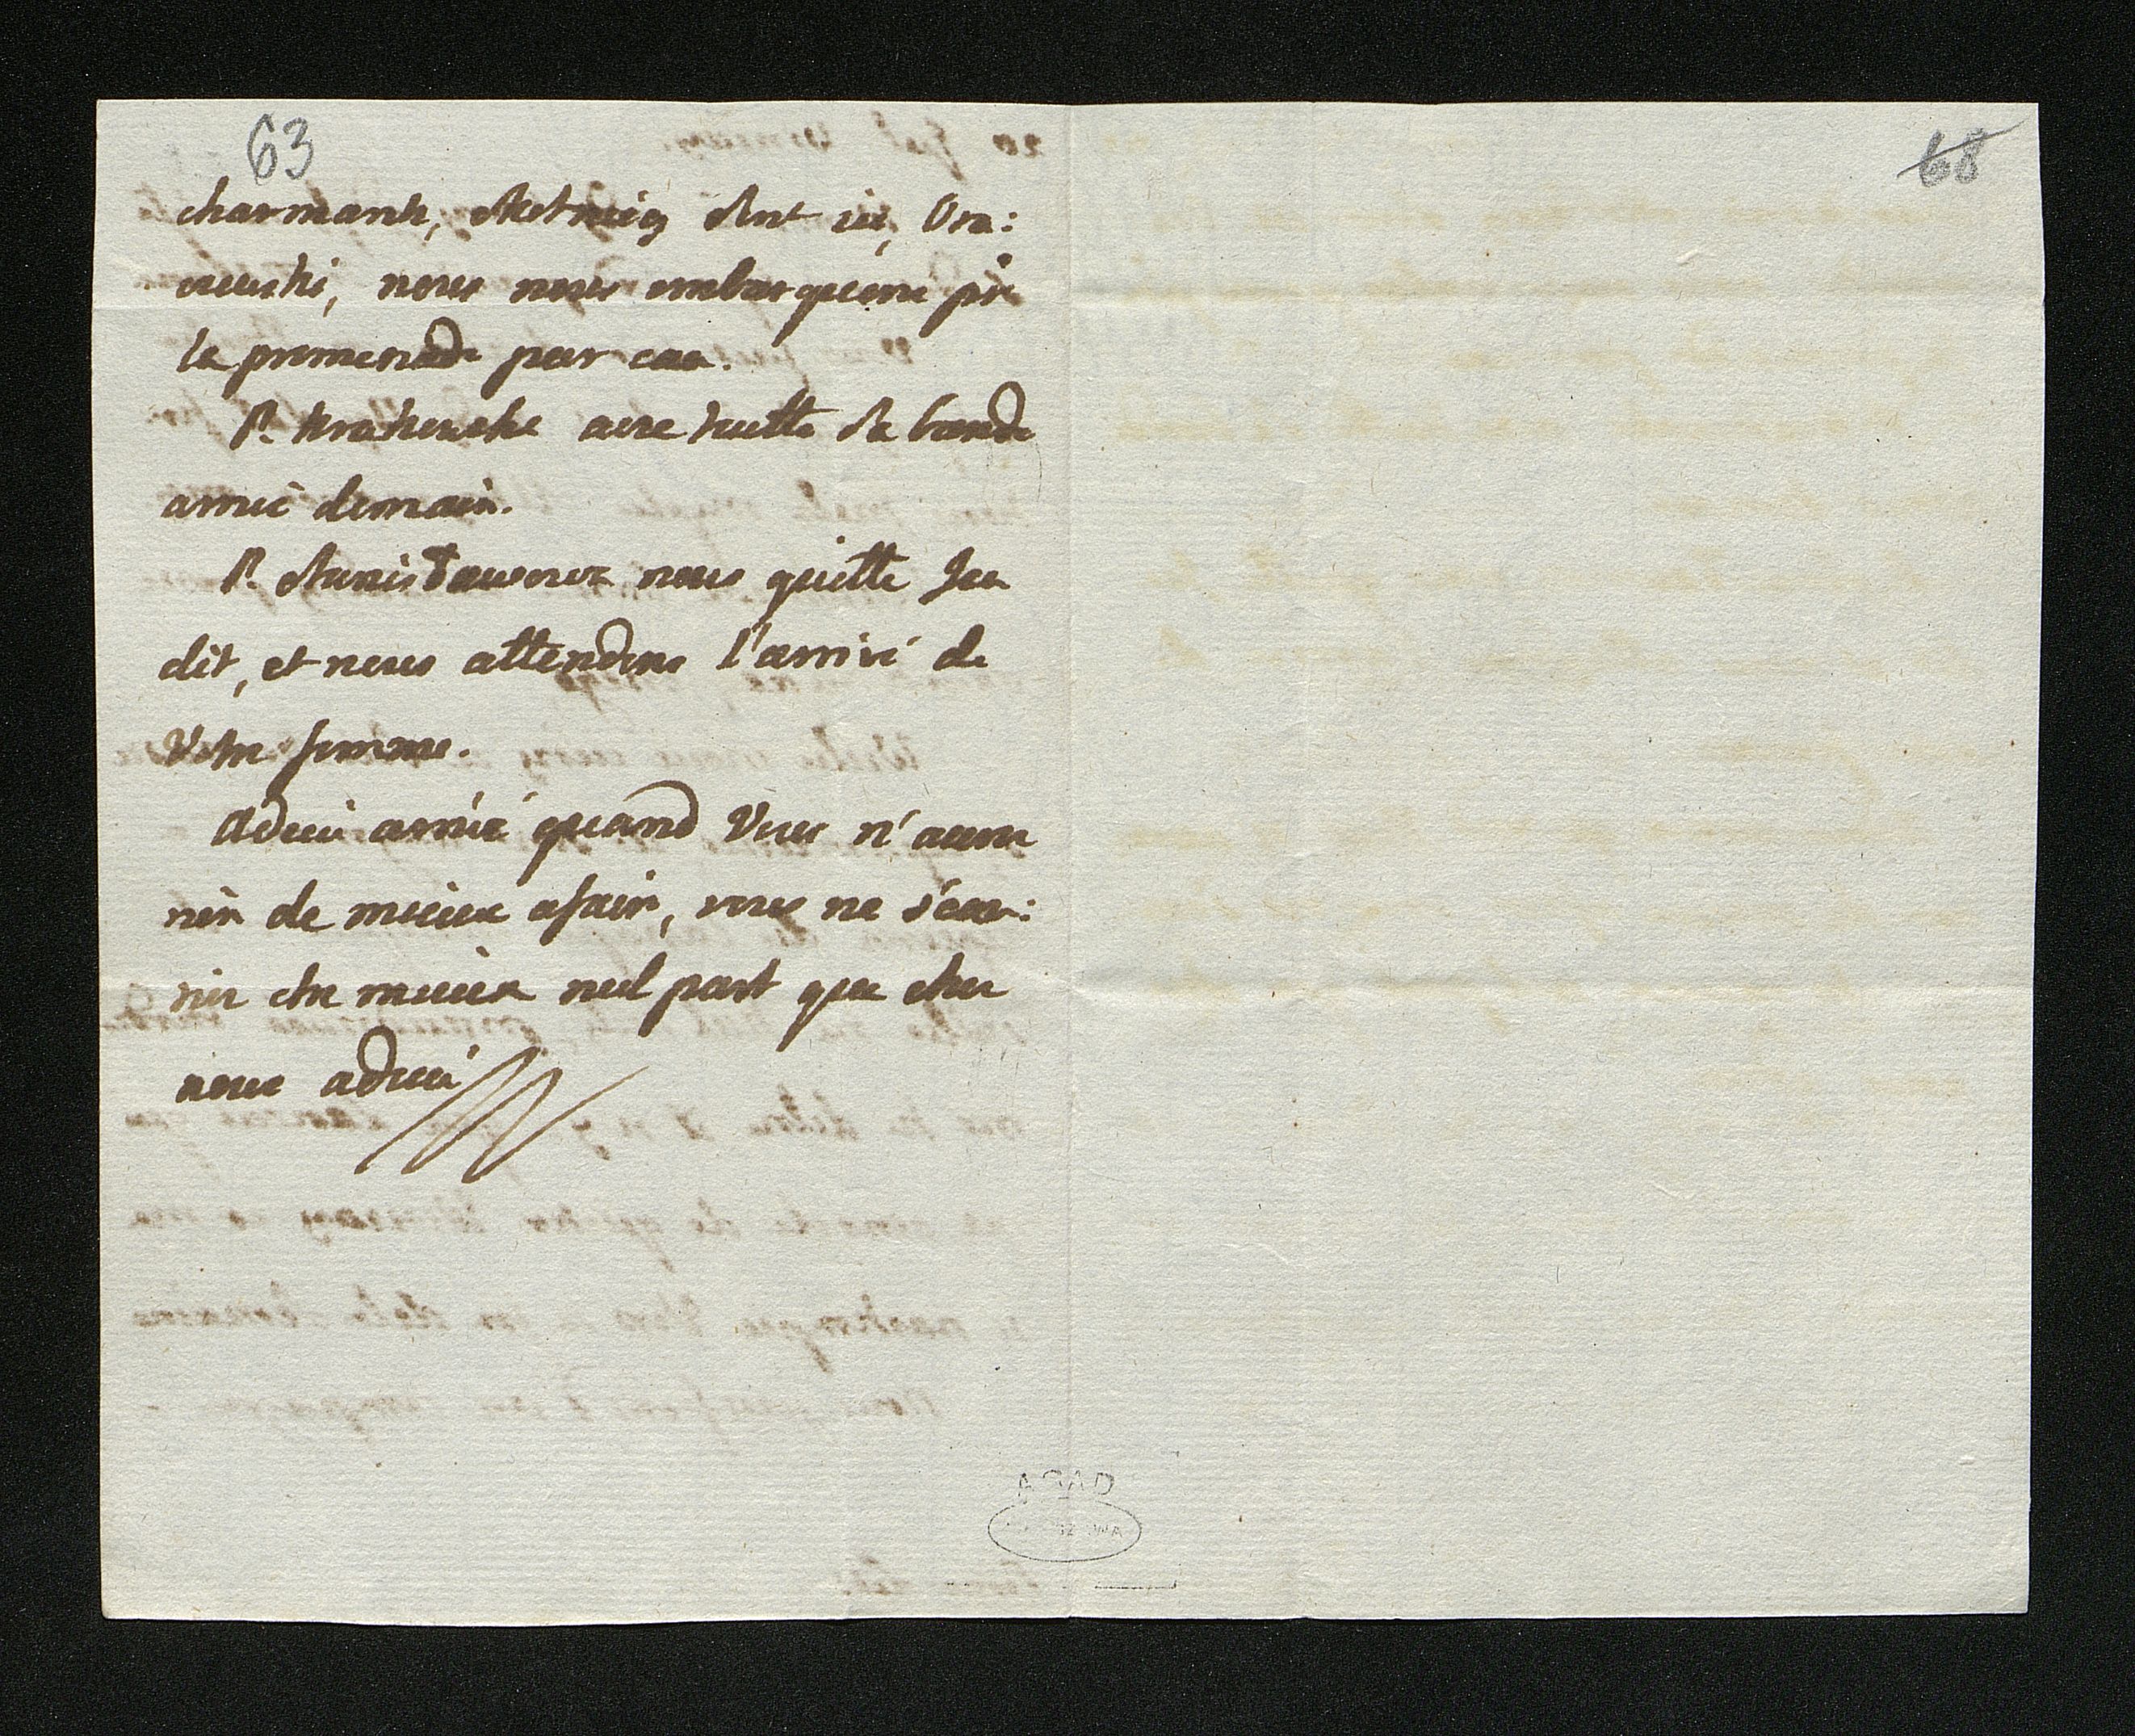 63
68
charmante, Metnieg sont ici, Ura:
nuski, nous nous embarquons pr
la promenade par eau.
P. Krakuske avec toutte sa bande
arrivé demain.
P. Stanisławowa nous quitte Jeu
dit, et nous attendons l'arrivé de
Votre femme.
Adieu amié quand Vous n'aures
rien de mieux afair, vous ne s'cau:
riez etre mieux nul part que chez
nous adieu
AGAD